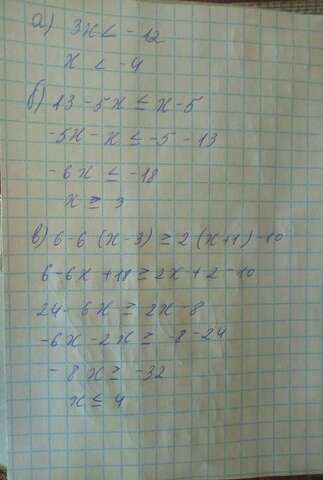 а) 3x < -12
x < -4
б) 13 - 5x ≤ x - 5
-5x - x ≤ -5 - 13
-6x ≤ -18
x ≥ 3
в) 6 - 6 (x - 3) ≥ 2 (x + 1) - 10
6 - 6x + 18 ≥ 2x + 2 - 10
24 - 6x ≥ 2x - 8
-6x - 2x ≥ -8 - 24
-8x ≥ -32
x ≤ 4